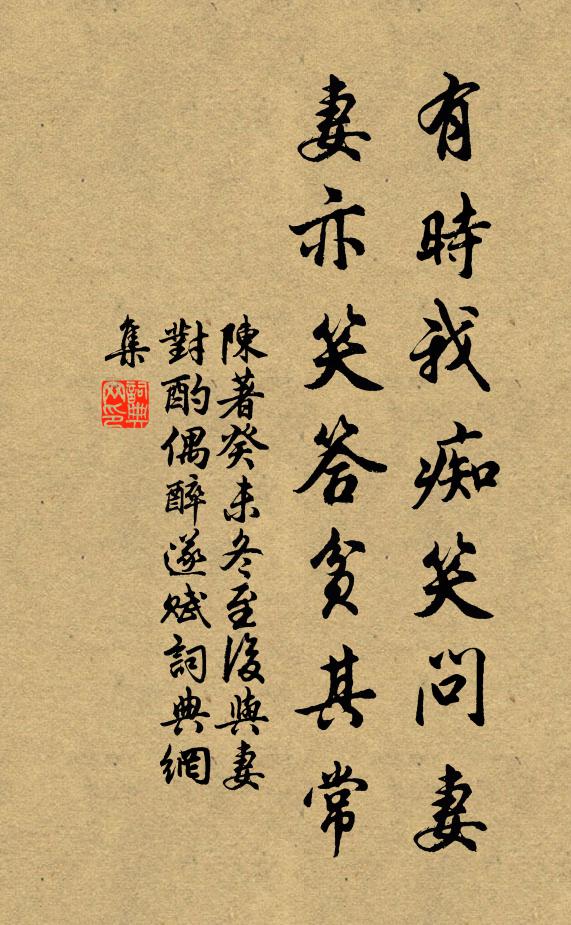 有時我痴笑問妻
妻亦笑答貧其常
陳著癸未冬至後與妻
對酌偶醉遂賦詞典網
集
詞典网印